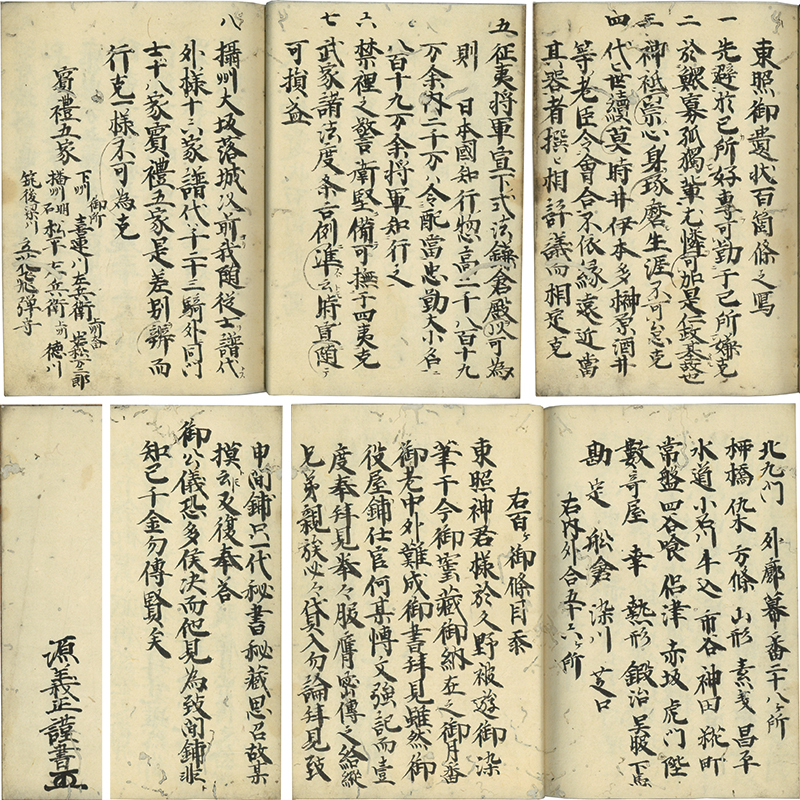 東照御遺状百箇條之寫
一 先避於己所好専可勤于己所嫌克
二 於鰥寡孤獨輩尤憐可加是仁政基故也
三 神祇崇心身琢磨生涯不可怠克
四 代々世續莫時井伊本多榊原酒井
等老臣令會合不依縁遠近當
其器者撰ミ相評議而相定克
五 征夷将軍宣下式法鎌倉殿以可為
則 日本國知行惣高二千八百十九
万余内二千万ハ令配當忠勤大小名ニ
八百十九万余将軍知行之
六 禁裡之警衛堅備可撫于四夷克
七 武家諸法度条々古例準シ時宜随テ
可損益
八 攝州大坂落城以前我随従士譜代
外様十八家譜代八千二十三騎外同門
士十八家賓禮五家是差別辨而
行克一様不可為克
賓禮五家
下州 御所 喜連川左兵衛
岩松万二郎
播州明石 松平七兵衛
徳川
筑後梁川 立花飛弾守
北九門 外廓幕番二十八ヶ所
柳橋 山形 昌平
水道 小石川 牛込 市谷 神田 糀町
常盤 四谷 喰 呂津 赤坂 虎門
數寄屋 幸 鍛治 呉服
勘定 舩倉 染川 芝口
右内外合五十六ヶ所
右百ヶ御條目忝
東照神君様於久野被遊御染
筆于今御寳蔵御納在之御月番
御老中外難成御書拝見雖然御
役屋鋪仕官何某博文強記而壹
度奉拝見拳々服膺密傳之給縦
兄弟親族必々貸入勿論拝見致
申間鋪只一代秘書秘蔵思召故某
摸亦又復奉答
御公儀恐多侯决而他見為致間鋪非
知已千金勿傳賢矣
源義正謹書